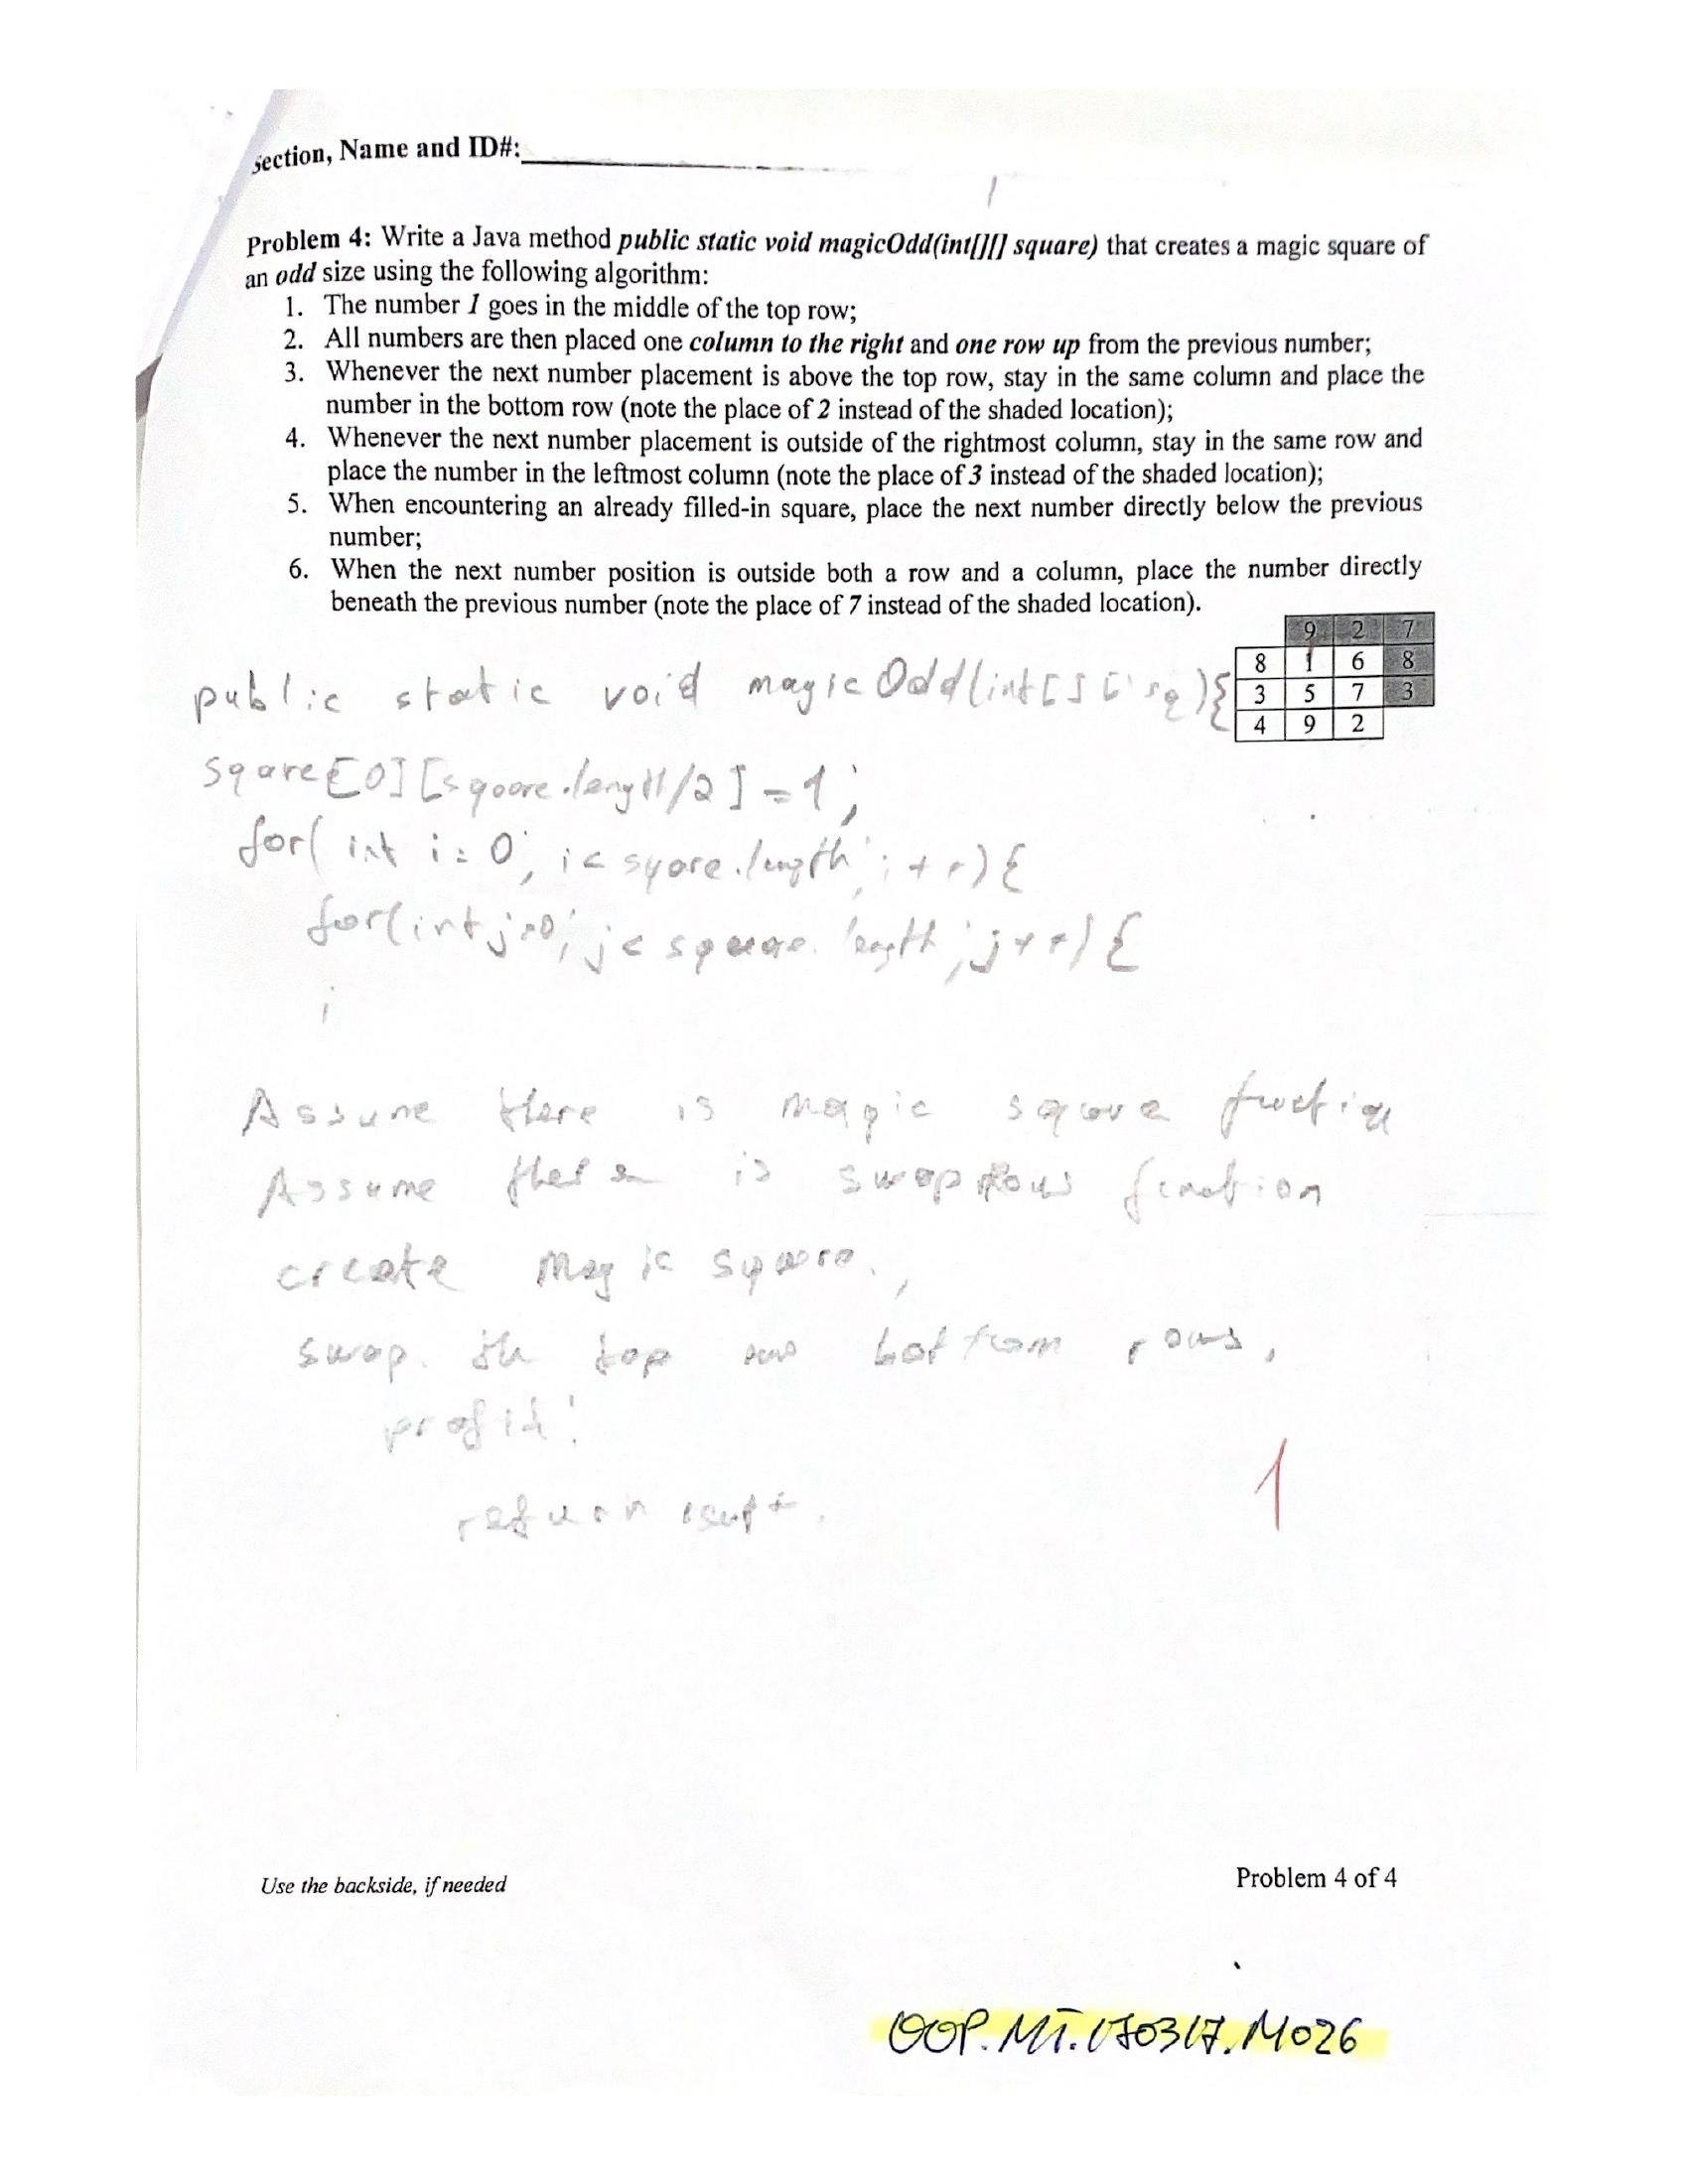 Section, Name and ID#:
Problem 4: Write a Java method public static void magicOdd(int[][] square) that creates a magic square of
an odd size using the following algorithm:
1. The number 1 goes in the middle of the top row;
2. All numbers are then placed one column to the right and one row up from the previous number;
3. Whenever the next number placement is above the top row, stay in the same column and place the
number in the bottom row (note the place of 2 instead of the shaded location);
4. Whenever the next number placement is outside of the rightmost column, stay in the same row and
place the number in the leftmost column (note the place of 3 instead of the shaded location);
5. When encountering an already filled-in square, place the next number directly below the previous
number;
6. When the next number position is outside both a row and a column, place the number directly
beneath the previous number (note the place of 7 instead of the shaded location).
9 2 7
8 1 6 8
3 5 7 3
4 9 2
public static void magicOdd(int[][] sq){
sqare[0][sqoore.length/2]=1;
for( int i=0; i< syore.length; i++){
for(int j=0; j< square.length; j++){
i
Assume there is magic square
Assume is swap Rows function
create magic square.,
swap. the top bottom rows,
profit!
return
1
Use the backside, if needed
Problem 4 of 4
OOP.MT.170317.M026